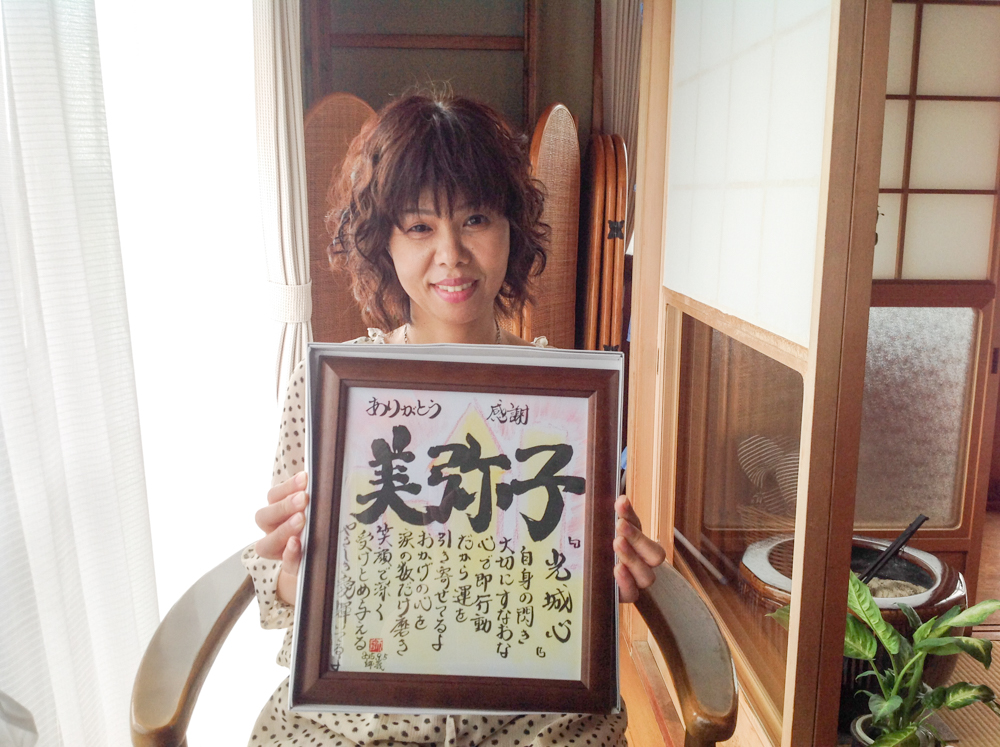 ありがとう　感謝
美弥子
『光城心』
自身の閃き
大切にすなおな
心で即行動
だから運を
引き寄せてるよ
おかげの心を
涙の数だけ磨き
笑顔で深く
受けとめ与える